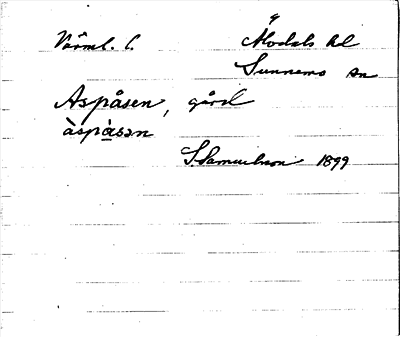 Värml. l. Älvdals hd
Sunnemo sn
Aspåsen, gård
àspå̀sən
S. Samuelsson 1899